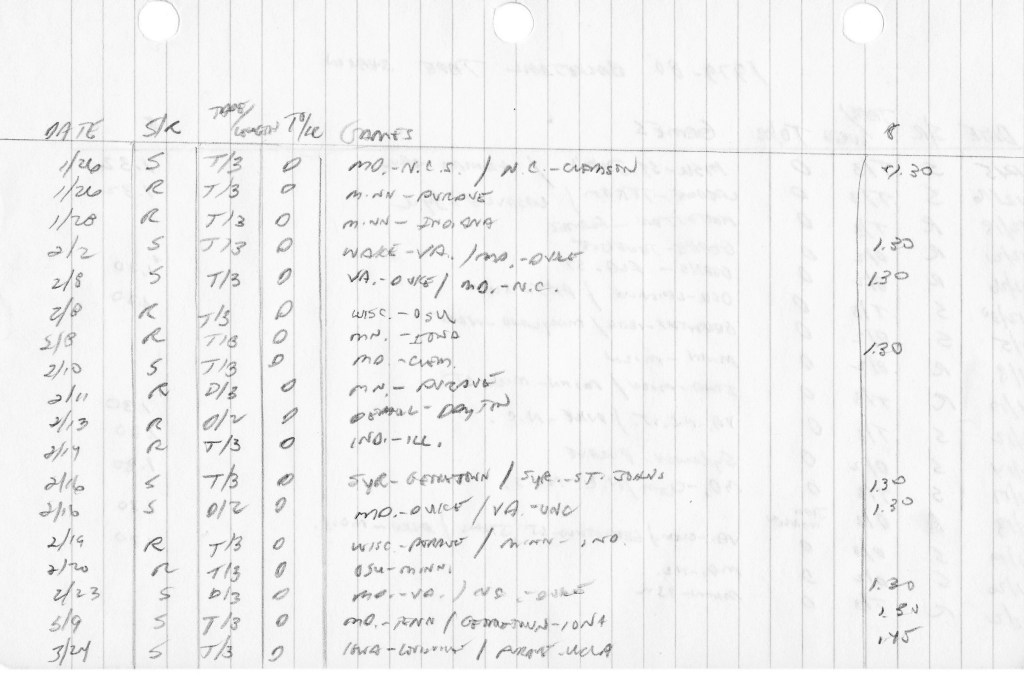 DATE S/R TAPE/LENGTH TO/ GAMES $
1/26 S T/3 O MD.-N.C.S. / N.C.-CLEMSON 1.30
1/26 R T/3 O MINN-PURDUE
1/28 R T/3 O MINN-INDIANA
2/2 S T/3 O WAKE-VA. / MD.-DUKE 1.30
2/8 S T/3 O VA.-DUKE / MD.-N.C. 1.30
2/8 R T/3 O WISC.-OSU
2/8 R T/3 O MN.-IOWA
2/10 S T/3 O MD-CLEM. 1.30
2/11 R D/3 O MN.-PURDUE
2/13 R D/2 O DEPAUL-DAYTON
2/14 R T/3 O IND.-ILL.
2/16 S T/3 O SYR-GEORGETOWN / SYR.-ST. JOHNS 1.30
2/16 S D/2 O MD.-DUKE / VA.-UNC 1.30
2/19 R T/3 O WISC.-PURDUE / MINN-IND.
2/20 R T/3 O OSU-MINN.
2/23 S D/3 O MD.-VA. / NS.-DUKE 1.30
3/9 S T/3 O MD.-TENN / GEORGETOWN-IONA 1.30
3/24 S T/3 O IOWA- / PURDUE-UCLA 1.45